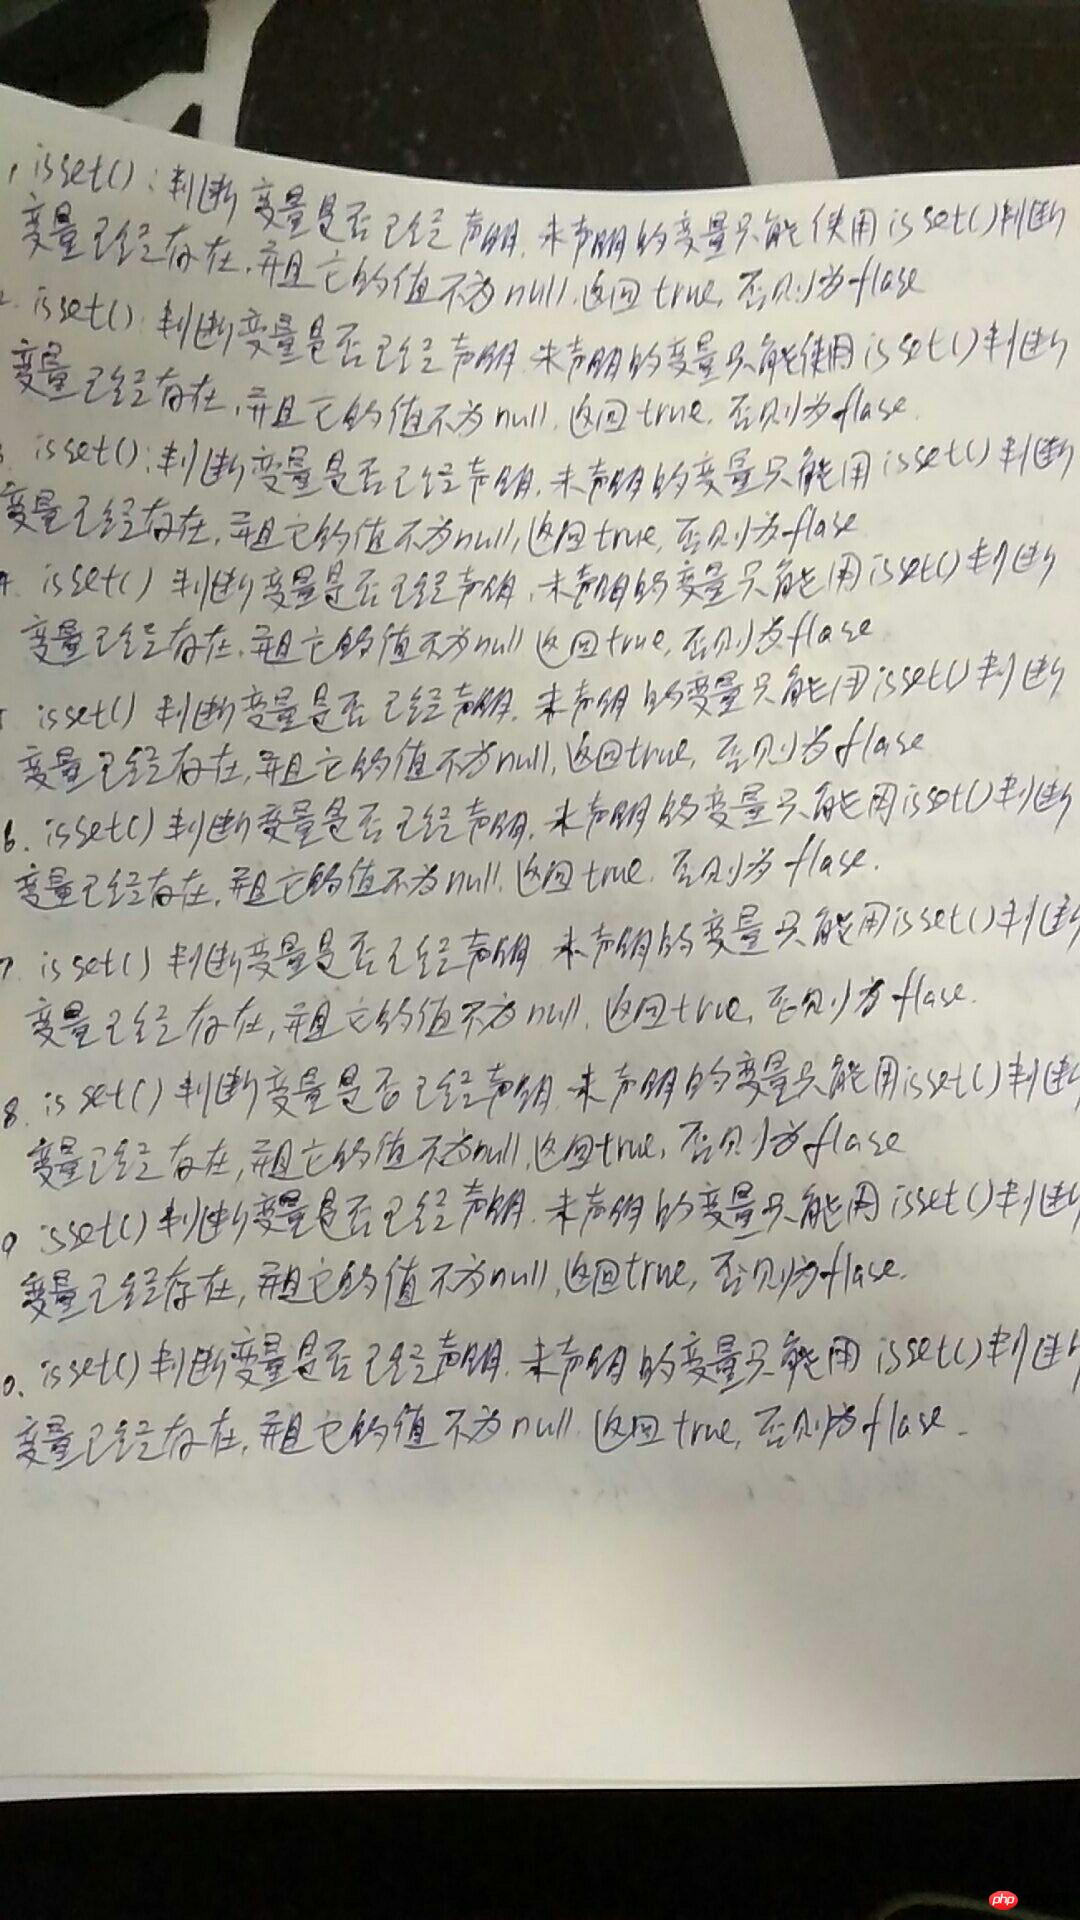 1 isset():判断变量是否已经声明.未声明的变量只能使用isset()判断
变量已经存在,并且它的值不为null,返回true,否则为flase
2. isset():判断变量是否已经声明.未声明的变量只能使用isset()判断
变量已经存在,并且它的值不为null,返回true,否则为flase.
3. isset():判断变量是否已经声明.未声明的变量只能用isset()判断
变量已经存在,并且它的值不为null,返回true,否则为flase
4. isset() 判断变量是否已经声明.未声明的变量只能用isset()判断
变量已经存在.并且它的值不为null返回true,否则为flase
isset() 判断变量是否已经声明.未声明的变量只能用isset()判断
变量已经存在,并且它的值不为null,返回true,否则为flase
6. isset()判断变量是否已经声明.未声明的变量只能用isset()判断
变量已经存在,并且它的值不为null.返回true.否则为flase.
7. isset()判断变量是否已经声明 未声明的变量只能用isset()判断
变量已经存在,并且它的值不为null.返回true,否则为flase.
8. isset()判断变量是否已经声明.未声明的变量只能用isset()判断
变量已经存在,并且它的值不为null,返回true,否则为flase
9 isset()判断变量是否已经声明.未声明的变量只能用isset()判断
变量已经存在,并且它的值不为null,返回true,否则为flase.
0. isset()判断变量是否已经声明.未声明的变量只能用isset()判断
变量已经存在,并且它的值不为null.返回true,否则为flase.
php